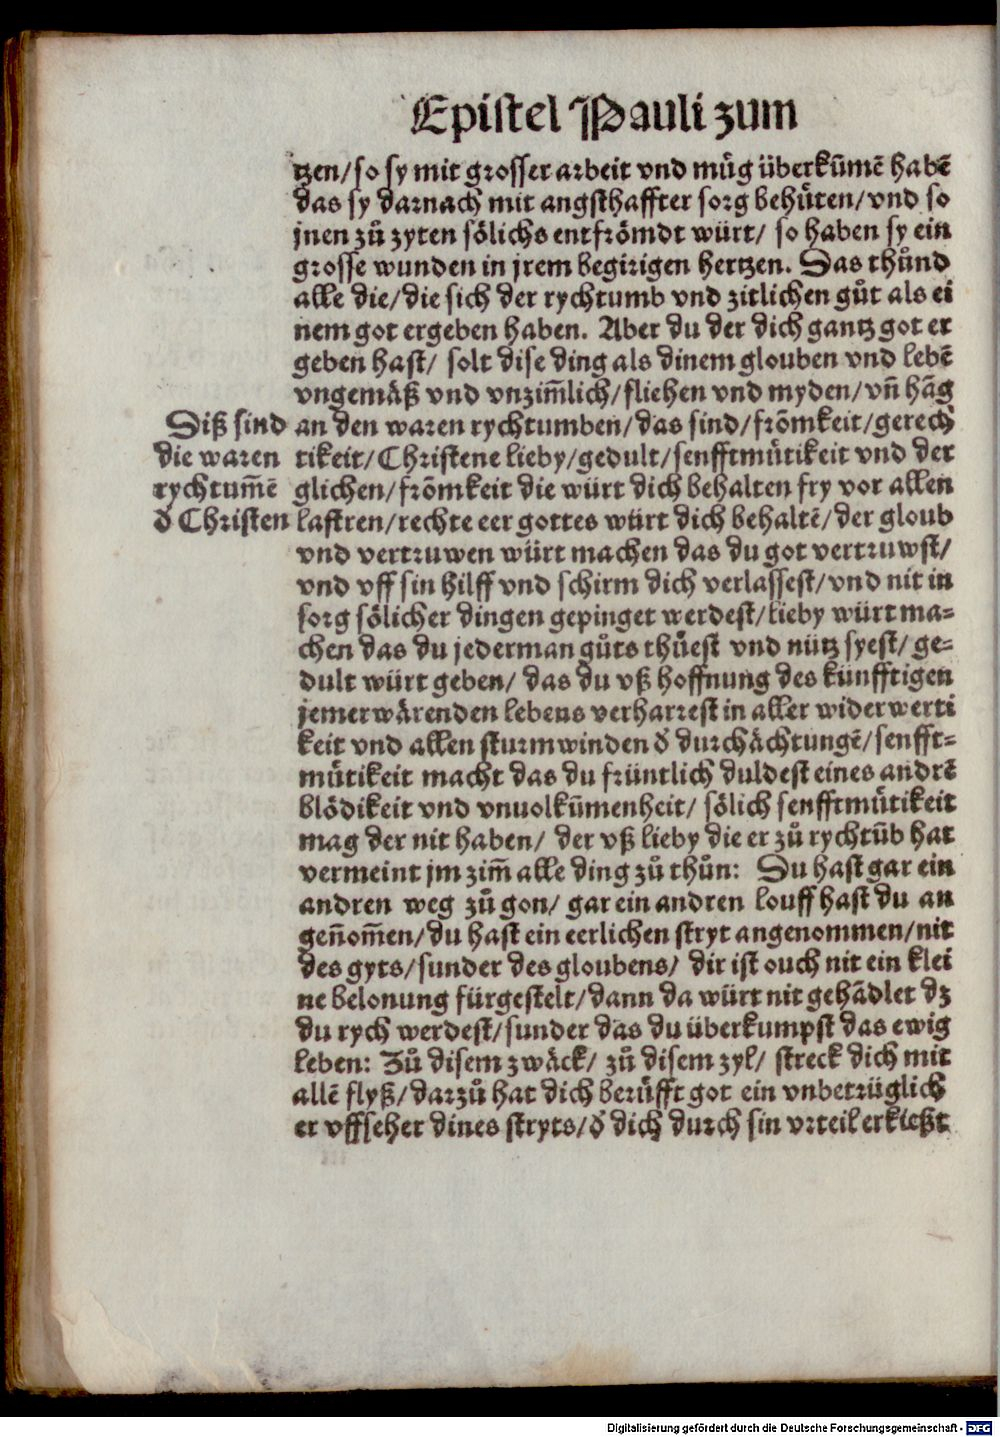 Epistel Pauli zum
tzen/so sy mit grosser arbeit vnd müg überkūmē habē
das sy darnach mit angsthaffter sorg behüten/vnd so
jnen zů zyten sölichs entfrömdt würt/ so haben sy ein
grosse wunden in jrem begirigen hertzen. Das thůnd
alle die/die sich der rychtumb vnd zitlichen gůt als ei
nem got ergeben haben. Aber du der dich gantz got er
geben hast/ solt dise ding als dinem glouben vnd lebē
vngemäß vnd vnzim̄lich/fliehen vnd myden/vn̄ hāg
an den waren rychtumben/das sind/frömkeit/gerech
tikeit/Christene lieby/gedult/senfftmütikeit vnd der
glichen/frömkeit die würt dich behalten fry vor allen
lastren/rechte eer gottes würt dich behaltē/der gloub
vnd vertruwen würt machen das du got vertruwst/
vnd vff sin hilff vnd schirm dich verlassest/vnd nit in
sorg sölicher dingen gepinget werdest/lieby würt ma-
chen das du jederman gůts thüest vnd nütz syest/ ge-
dult würt geben/ das du vß hoffnung des künfftigen
jemerwärenden lebens verharrest in aller widerwerti
keit vnd allen sturmwinden ð durchächtungē/senfft-
mütikeit macht das du früntlich duldest eines andrē
blödikeit vnd vnuolkūmenheit/ sölich senfftmütikeit
mag der nit haben/ der vß lieby die er zů rychtūb hat
vermeint jm zim̄ alle ding zů thůn: Du hast gar ein
andren weg zů gon/ gar ein andren louff hast du an
gen̄om̄en/du hast ein eerlichen stryt angenommen/nit
des gyts/sunder des gloubens/ dir ist ouch nit ein klei
ne belonung fürgestelt/dann da würt nit gehādlet dz
du rych werdest/sunder das du überkumpst das ewig
leben: Zů disem zwäck/ zů disem zyl/ streck dich mit
allē flyß/darzů hat dich berüfft got ein vnbetrüglich
er vffseher dines stryts/ð dich durch sin vrteil erkießt
Diß sind
die waren
rychtum̄ē
ð Christen
Digitalisierung gefördert durch die Deutsche Forschungsgemeinschaft - DFG